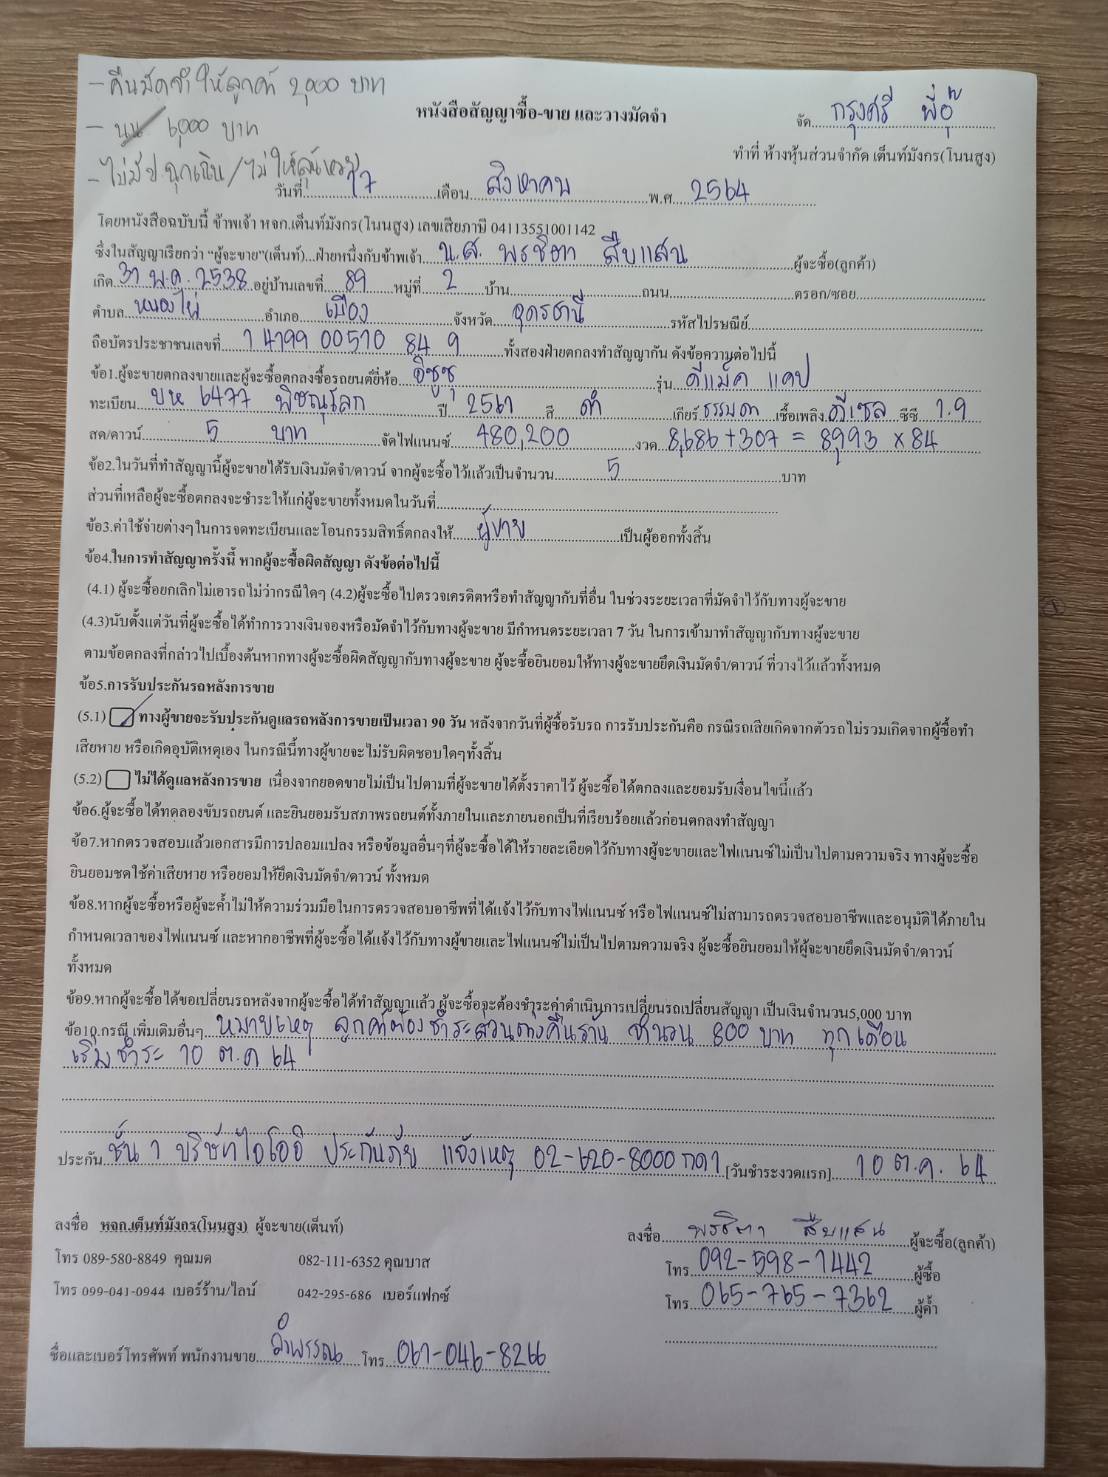 - คืนมัดจำ ให้ลูกค้า 2,000 บาท
หนังสือสัญญาซื้อ-ขาย และวางมัดจำ
จัด กรุงศรี พี่อุ๊
- 6,000 บาท
ทำที่ ห้างหุ้นส่วนจำกัด เต็นท์มังกร(โนนสูง)
- ไม่มี ฉุกเฉิน/ไม่ให้
วันที่ 17 เดือน สิงหาคม พ.ศ. 2564
โดยหนังสือฉบับนี้ ข้าพเจ้า หจก.เต็นท์มังกร(โนนสูง) เลขเสียภาษี 04113551001142
ซึ่งในสัญญาเรียกว่า "ผู้จะขาย"(เต็นท์)...ฝ่ายหนึ่งกับข้าพเจ้า น.ส. พรชิตา สืบแสน ผู้จะซื้อ(ลูกค้า)
เกิด 31 พ.ค. 2538 อยู่บ้านเลขที่ 89 หมู่ที่ 2 บ้าน ถนน ตรอก/ซอย
ตำบล หนองไผ่ อำเภอ เมือง จังหวัด อุดรธานี รหัสไปรษณีย์
ถือบัตรประชาชนเลขที่ 1 4199 00510 84 9 ทั้งสองฝ่ายตกลงทำสัญญากัน ดังข้อความต่อไปนี้
ข้อ1.ผู้จะขายตกลงขายและผู้จะซื้อตกลงซื้อรถยนต์ยี่ห้อ อีซูซุ รุ่น ดีแม็ค แคป
ทะเบียน บห 6477 พิษณุโลก ปี 2561 สี ดำ เกียร์ ธรรมดา เชื้อเพลิง ดีเซล ซีซี 1.9
สด/ดาวน์ 5 บาท จัดไฟแนนซ์ 480,200 งวด 8,686+307 = 8,993 x 84
ข้อ2.ในวันที่ทำสัญญานี้ผู้จะขายได้รับเงินมัดจำ/ดาวน์ จากผู้จะซื้อไว้แล้วเป็นจำนวน 5 บาท
ส่วนที่เหลือผู้จะซื้อตกลงจะชำระให้แก่ผู้จะขายทั้งหมดในวันที่
ข้อ3.ค่าใช้จ่ายต่างๆในการจดทะเบียนและโอนกรรมสิทธิ์ตกลงให้ ผู้ขาย เป็นผู้ออกทั้งสิ้น
ข้อ4.ในการทำสัญญาครั้งนี้ หากผู้จะซื้อผิดสัญญา ดังข้อต่อไปนี้
(4.1) ผู้จะซื้อยกเลิกไม่เอารถไม่ว่ากรณีใดๆ (4.2)ผู้จะซื้อไปตรวจเครดิตหรือทำสัญญากับที่อื่น ในช่วงระยะเวลาที่มัดจำไว้กับทางผู้จะขาย
(4.3)นับตั้งแต่วันที่ผู้จะซื้อได้ทำการวางเงินจองหรือมัดจำไว้กับทางผู้จะขาย มีกำหนดระยะเวลา 7 วัน ในการเข้ามาทำสัญญากับทางผู้จะขาย
ตามข้อตกลงที่กล่าวไปเบื้องต้นหากทางผู้จะซื้อผิดสัญญากับทางผู้จะขาย ผู้จะซื้อยินยอมให้ทางผู้จะขายยึดเงินมัดจำ/ดาวน์ ที่วางไว้แล้วทั้งหมด
ข้อ5.การรับประกันรถหลังการขาย
(5.1) ทางผู้ขายจะรับประกันดูแลรถหลังการขายเป็นเวลา 90 วัน หลังจากวันที่ผู้ซื้อรับรถ การรับประกันคือ กรณีรถเสียเกิดจากตัวรถไม่รวมเกิดจากผู้ซื้อทำ
เสียหาย หรือเกิดอุบัติเหตุเอง ในกรณีนี้ทางผู้ขายจะไม่รับผิดชอบใดๆทั้งสิ้น
(5.2) ไม่ได้ดูแลหลังการขาย เนื่องจากยอดขายไม่เป็นไปตามที่ผู้จะขายได้ตั้งราคาไว้ ผู้จะซื้อได้ตกลงและยอมรับเงื่อนไขนี้แล้ว
ข้อ6.ผู้จะซื้อได้ทดลองขับรถยนต์ และยินยอมรับสภาพรถยนต์ทั้งภายในและภายนอกเป็นที่เรียบร้อยแล้วก่อนตกลงทำสัญญา
ข้อ7.หากตรวจสอบแล้วเอกสารมีการปลอมแปลง หรือข้อมูลอื่นๆที่ผู้จะซื้อได้ให้รายละเอียดไว้กับทางผู้จะขายและไฟแนนซ์ไม่เป็นไปตามความจริง ทางผู้จะซื้อ
ยินยอมชดใช้ค่าเสียหาย หรือยอมให้ยึดเงินมัดจำ/ดาวน์ ทั้งหมด
ข้อ8.หากผู้จะซื้อหรือผู้จะค้ำไม่ให้ความร่วมมือในการตรวจสอบอาชีพที่ได้แจ้งไว้กับทางไฟแนนซ์ หรือไฟแนนซ์ไม่สามารถตรวจสอบอาชีพและอนุมัติได้ภายใน
กำหนดเวลาของไฟแนนซ์ และหากอาชีพที่ผู้จะซื้อได้แจ้งไว้กับทางผู้ขายและไฟแนนซ์ไม่เป็นไปตามความจริง ผู้จะซื้อยินยอมให้ผู้จะขายยึดเงินมัดจำ/ดาวน์
ทั้งหมด
ข้อ9.หากผู้จะซื้อได้ขอเปลี่ยนรถหลังจากผู้จะซื้อได้ทำสัญญาแล้ว ผู้จะซื้อจะต้องชำระค่าดำเนินการเปลี่ยนรถเปลี่ยนสัญญา เป็นเงินจำนวน5,000 บาท
ข้อ10.กรณี เพิ่มเติมอื่นๆ หมายเหตุ ลูกค้าต้องชำระส่วนต่างคืนร้าน จำนวน 800 บาท ทุกเดือน
เริ่มชำระ 10 ต.ค 64
ประกัน ชั้น 1 บริษัทไอโออิ ประกันภัย แจ้งเหตุ 02-620-8000 กด1 [วันชำระงวดแรก] 10 ต.ค. 64
ลงชื่อ หจก.เต็นท์มังกร(โนนสูง) ผู้จะขาย(เต็นท์)
ลงชื่อ พรชิตา สืบแสน ผู้จะซื้อ(ลูกค้า)
โทร 089-580-8849 คุณมด 082-111-6352 คุณบาส
โทร 092-598-1442 ผู้ซื้อ
โทร 099-041-0944 เบอร์ร้าน/ไลน์ 042-295-686 เบอร์แฟกซ์
โทร 065-765-7362 ผู้ค้ำ
ชื่อและเบอร์โทรศัพท์ พนักงานขาย อำพรรณ โทร 061-046-8266